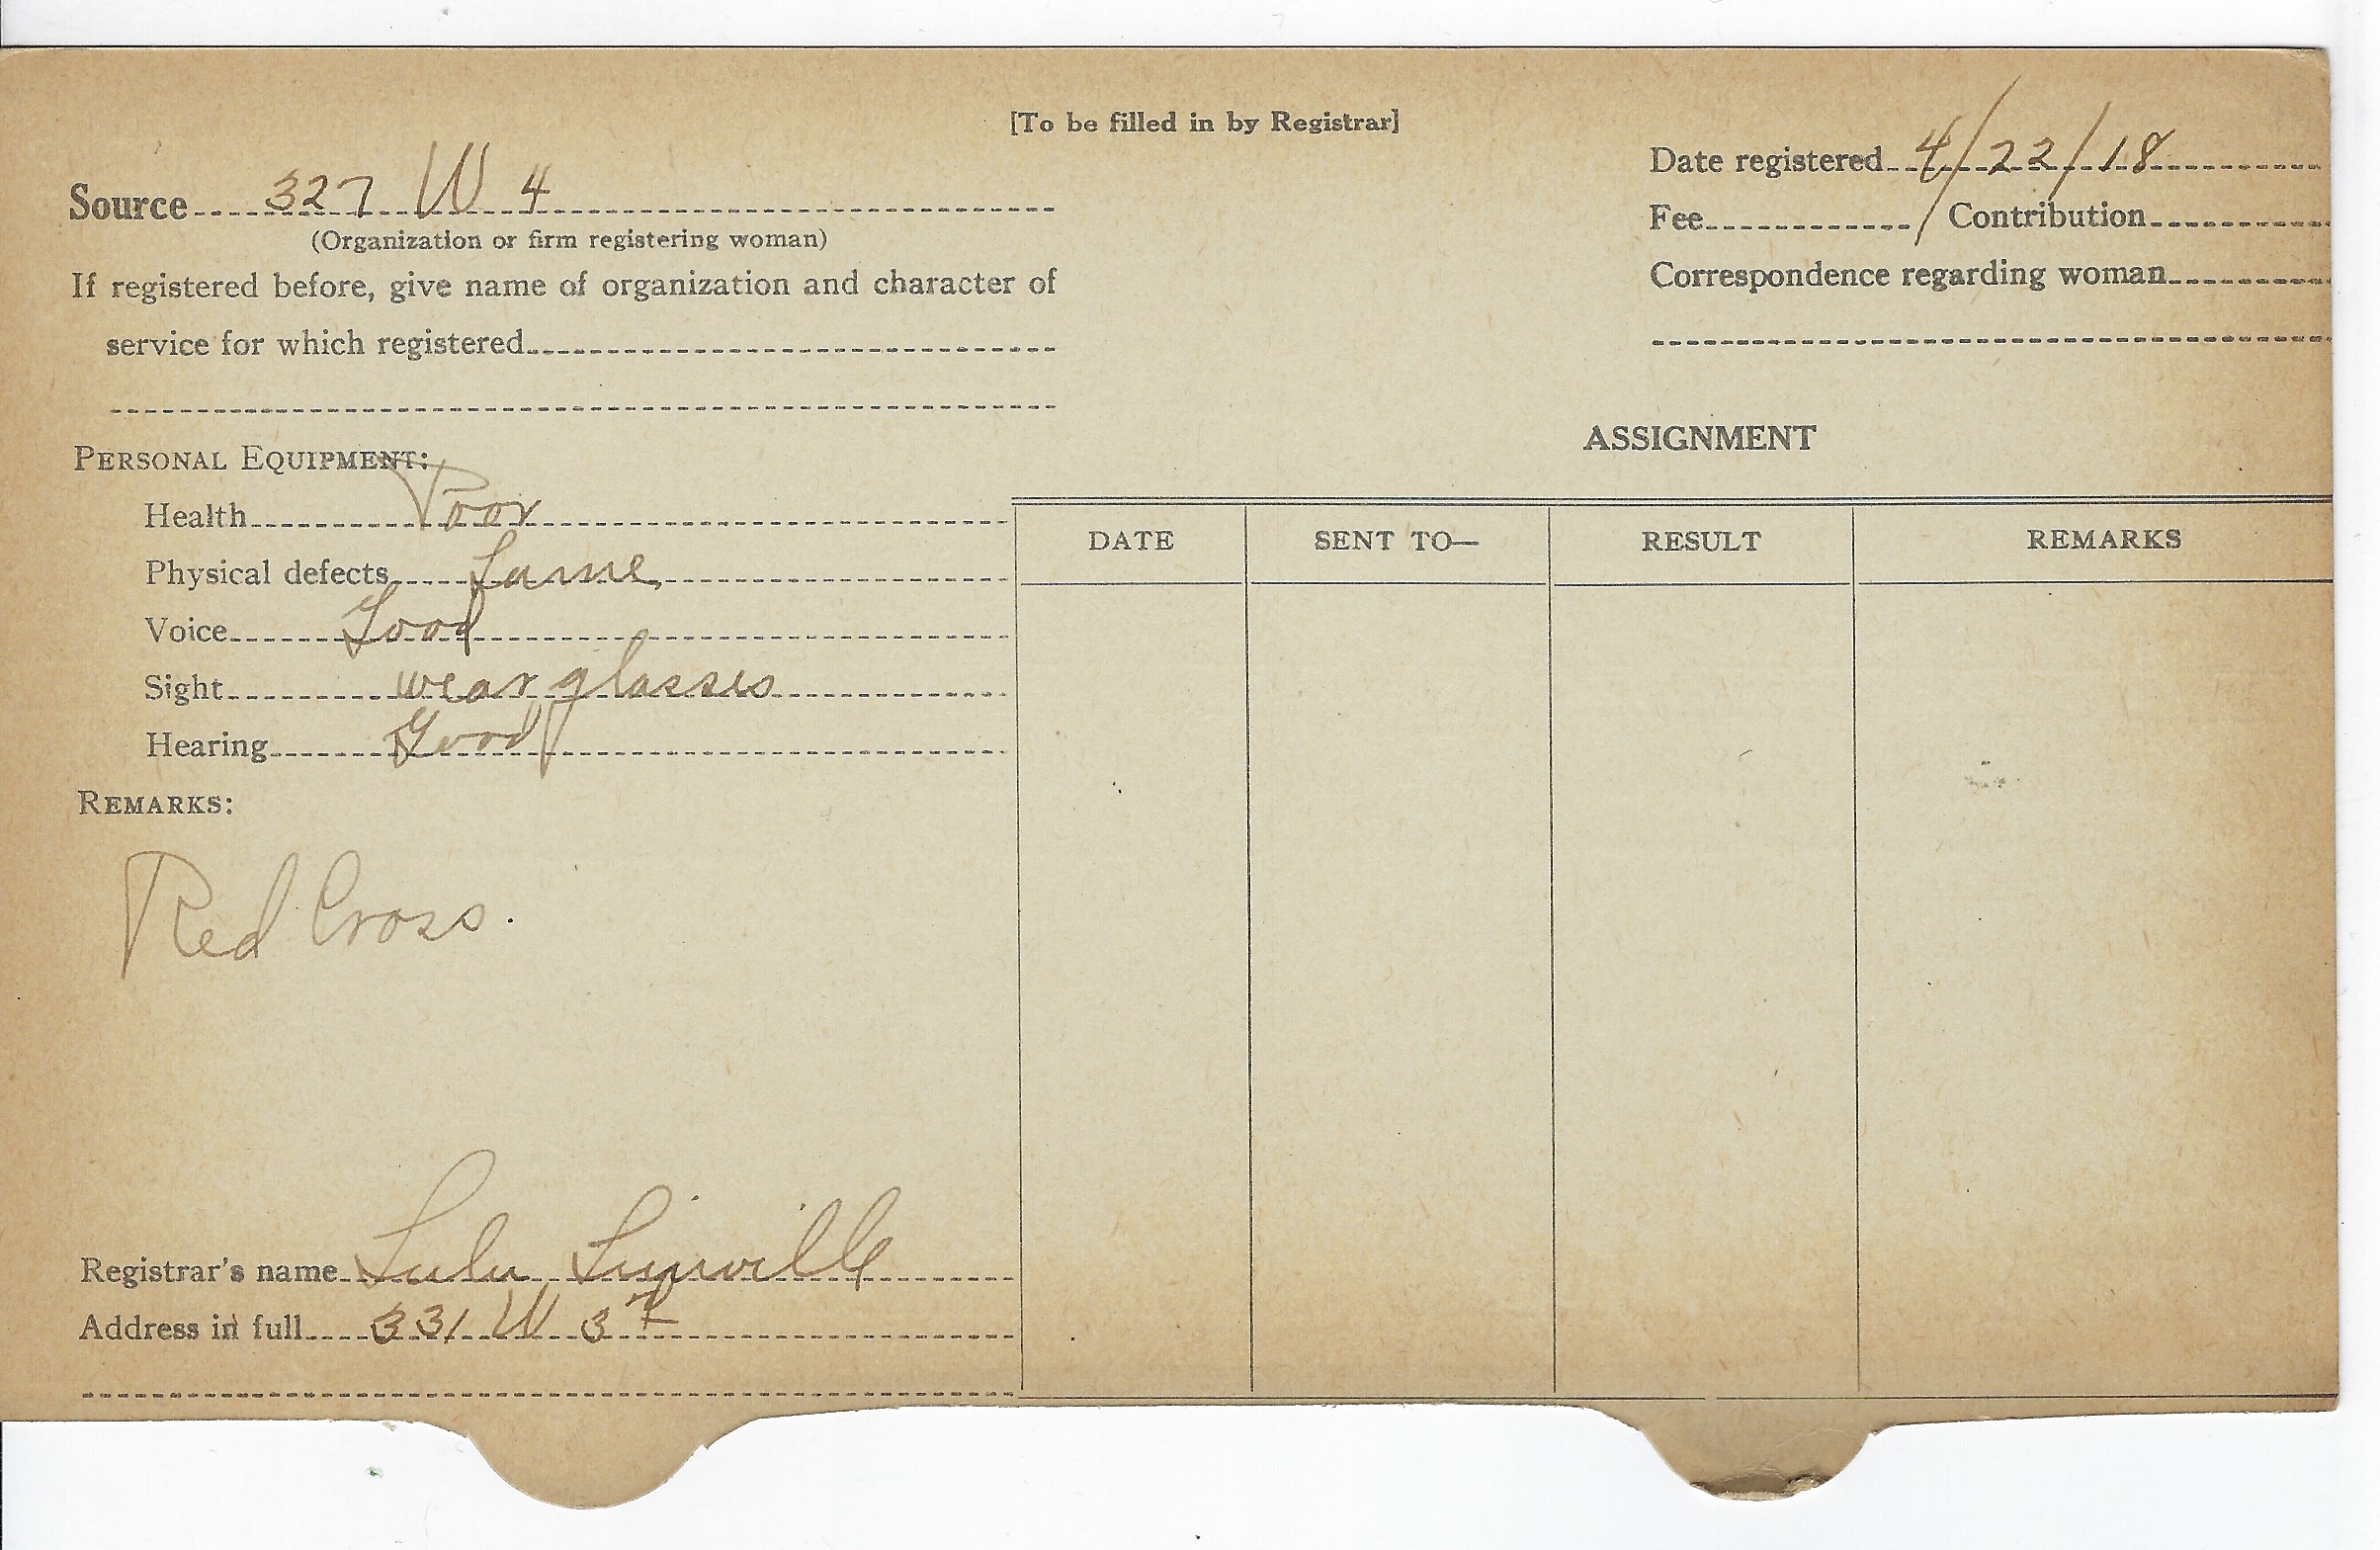 [To be filled in by Registrar]
Source 327 W 4
(Organization or firm registering woman)
If registered before, give name of organization and character of
service for which registered
Date registered 4/22/18
Fee / Contribution
Correspondence regarding woman
PERSONAL EQUIPMENT:
Health Poor
Physical defects Lame
Voice Good
Sight wear glasses
Hearing Good
REMARKS:
Red Cross.
Registrar's name Lulu Linville
Address in full 331 W 3
ASSIGNMENT
DATE SENT TO— RESULT REMARKS